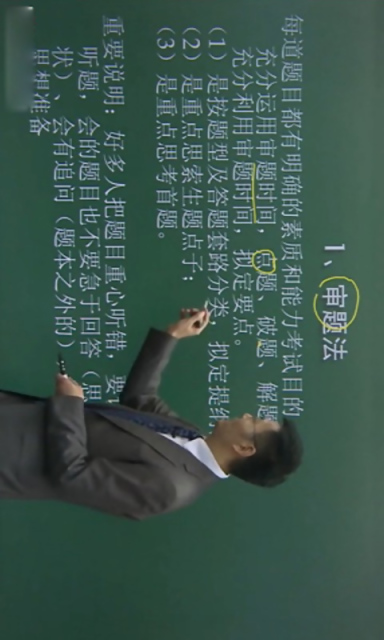 1、审题法
每道题目都有明确的素质和能力考试目的
充分运用审题时间，点题、破题、解题
充分利用审题时间，拟定要点。
（1）是按题型及答题套路分类，拟定提纲
（2）是重点思索生题点子；
（3）是重点思考首题。
重要说明：好多人把题目重心听错，要
听题，会的题目也不要急于回答（思
状）、会有追问（题本之外的）
思想准备